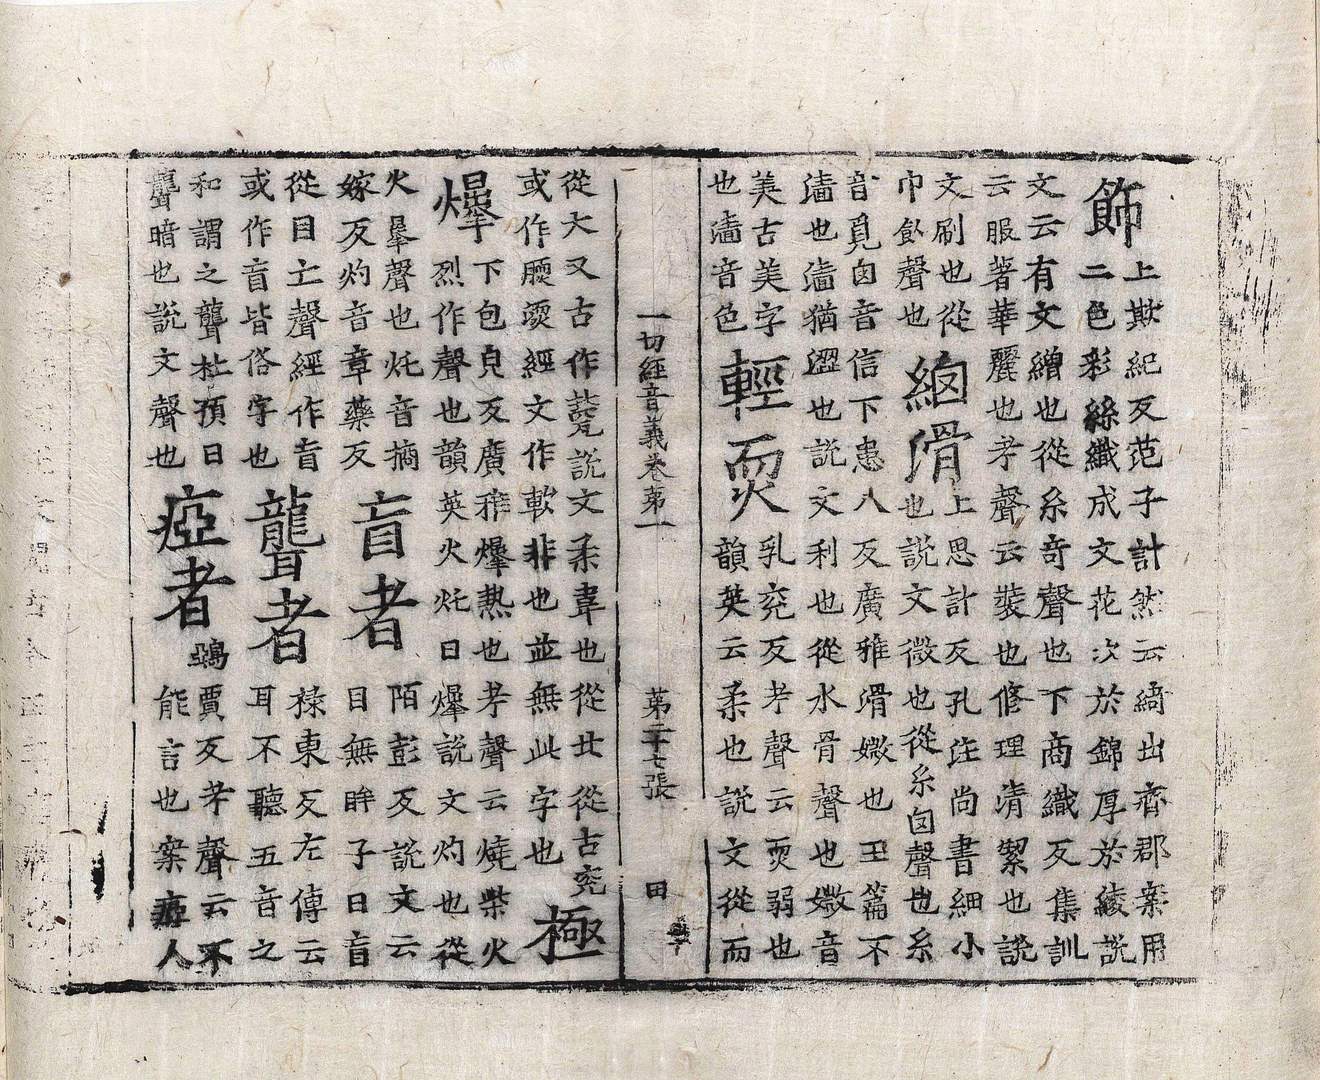 飾
上欺紀反范子計然云綺出齊郡案用
二色彩絲織成文花次於錦厚於綾說
文云有文繒也從糸奇聲也下商織反集訓
云服著華麗也考聲云裝也修理清絜也說
文刷也從
巾飤聲也
細滑
上思計反孔注尚書細小
也說文微也從糸囟聲也糸
音覓囟音信下患八反廣雅滑媺也玉篇不
濇也濇猶澀也說文利也從水骨聲也媺音
美古美字
也濇音色
輕耎
乳兖反考聲云耎弱也
韻英云柔也說文從而
一切經音義卷第一 第二十七張 田
從大又古作㼱說文柔韋也從廾從古兖
或作腝渜經文作軟非也並無此字也
極
爆
下包皃反廣雅爆熱也考聲云燒柴火
烈作聲也韻英火灹曰爆說文灼也從
火暴聲也灹音摘
嫁反灼音章藥反
盲者
陌彭反說文云
目無眸子曰盲
從目亡聲經作盲
或作盲皆俗字也
聾者
祿東反左傳云
耳不聽五音之
和謂之聾杜預曰
聾暗也說文聲也
瘂者
鵶賈反考聲云不
能言也案瘂人